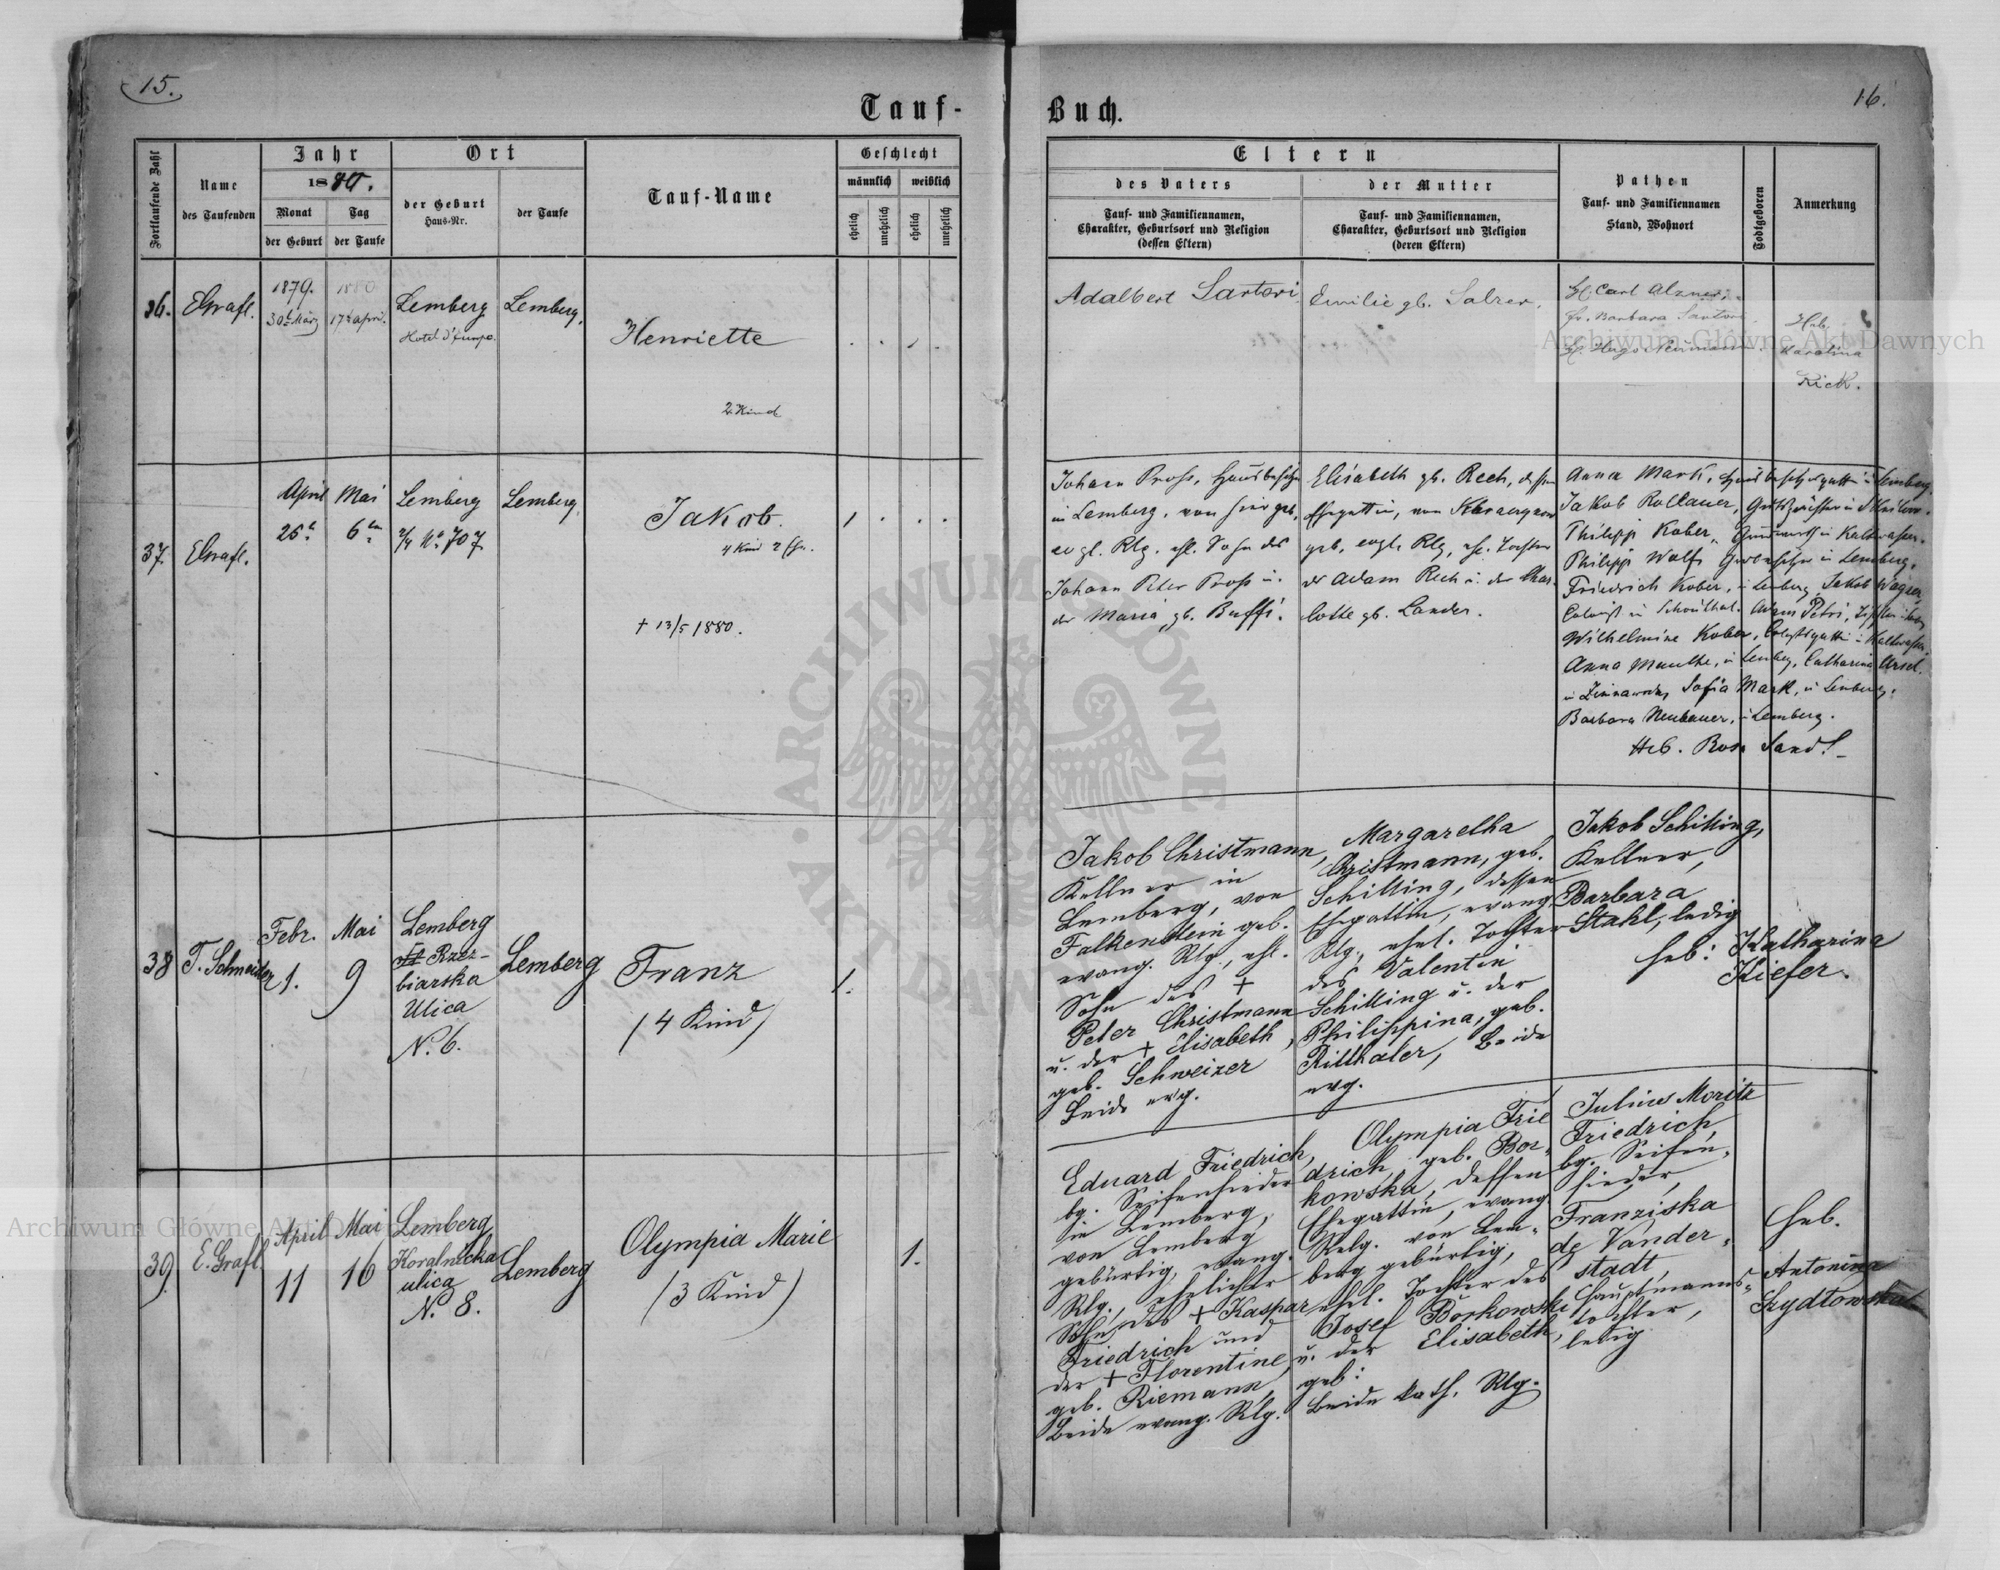 15.
Tauf-
Fortlaufende Zahl
Name
des Taufenden
Jahr
1880.
Monat
der Geburt
Tag
der Taufe
Ort
der Geburt
Haus-Nr.
der Taufe
Tauf-Name
Geschlecht
männlich
weiblich
ehelich
unehelich
ehelich
unehelich
36.
EGrafl.
1879.
30t März
1880
17t April.
Lemberg
Hotel d'Europe.
Lemberg.
Henriette
2. Kind
37.
EGrafl.
April
25t
Mai
6ten
Lemberg
2/4 No 707
Lemberg.
Jakob.
1
† 13/5 1880.
38
T. Schneider
Febr.
1.
Mai
9
Lemberg
Rzez-
biarska
Ulica
N. 6.
Lemberg
Franz
(4 Kind)
1.
39.
E. Grafl.
April
11
Mai
16
Lemberg
Koralnicka
ulica
N. 8.
Lemberg
Olympia Marie
(3 Kind)
1.
16.
Buch.
Eltern
des Vaters
Tauf- und Familiennamen,
Charakter, Geburtsort und Religion
(dessen Eltern)
der Mutter
Tauf- und Familiennamen,
Charakter, Geburtsort und Religion
(deren Eltern)
Pathen
Tauf- und Familiennamen
Stand, Wohnort
Todtgeboren
Anmerkung
Adalbert Sartori
Emilie gb. Salzer.
H. Carl Alzner
Fr. Barbara Sartori
H. Hugo Neumann.
Heb.
Karolina
Kick.
Johann Pross, Hausbesitzer
in Lemberg, von hier geb,
evgl. Rlg. ehl. Sohn des
Johann Peter Pross u.
der Maria, gb. Buffi.
Elisabeth gb. Rech, dessen
Ehegattin, von
geb, evgl. Rlg, ehl. Tochter
des Adam Rech u. der Char-
lotte gb. Lander.
Anna Mark, Hausbesitzersgattin in Lemberg
Jakob Rollauer,
Philipp Kober, Grundwirth in Kaltwasser.
Philipp Wolf, in Lemberg,
Friedrich Kober, in Lemberg, Jakob Wagner
Colonist in Schönthal. Adam Petri,
Wilhelmine Kober, in Kaltwasser,
Anna Manthe, in Lemberg, Catharina
Sofia Mark, in Lemberg,
Barbara Neubauer, in Lemberg.
Heb. Rosa Sandl
Jakob Christmann,
Kellner in
Lemberg, von
Falkenstein geb.
evang. Rlg., ehl.
Sohn des †
Peter Christmann
u. der † Elisabeth,
geb. Schweizer
beide evg.
Margaretha
Christmann, geb.
Schilling, dessen
Ehegattin, evang
Rlg., ehel. Tochter
des Valentin
Schilling u. der
Philippina, geb.
Ritthaler, beide
evg.
Jakob Schilling,
Kellner,
Barbara
Stahl, ledig
Heb: Katharina
Kiefer.
Eduard Friedrich,
bg. Seifensieder
in Lemberg,
von Lemberg
gebürtig, evang.
Rlg., ehelicher
Sohn des † Kaspar
Friedrich und
der † Florentine,
geb. Riemann,
beide evang. Rlg.
Olympia Frie
drich, geb. Bor-
kowska, dessen
Ehegattin, evang
Relg. von Lem-
berg gebürtig,
ehel. Tochter des
Josef Borkowski
u. der Elisabeth,
geb:
beide kath. Rlg.
Julius Moritz
Friedrich,
bg. Seifen-
sieder,
Franziska
de Vander-
stadt,
Hauptmanns-
tochter,
ledig
Heb.
Antonina
Szydłowska
Archiwum Główne Akt Dawnych
Archiwum Główne Akt Dawnych
ARCHIWUM GŁÓWNE AKT DAWNYCH